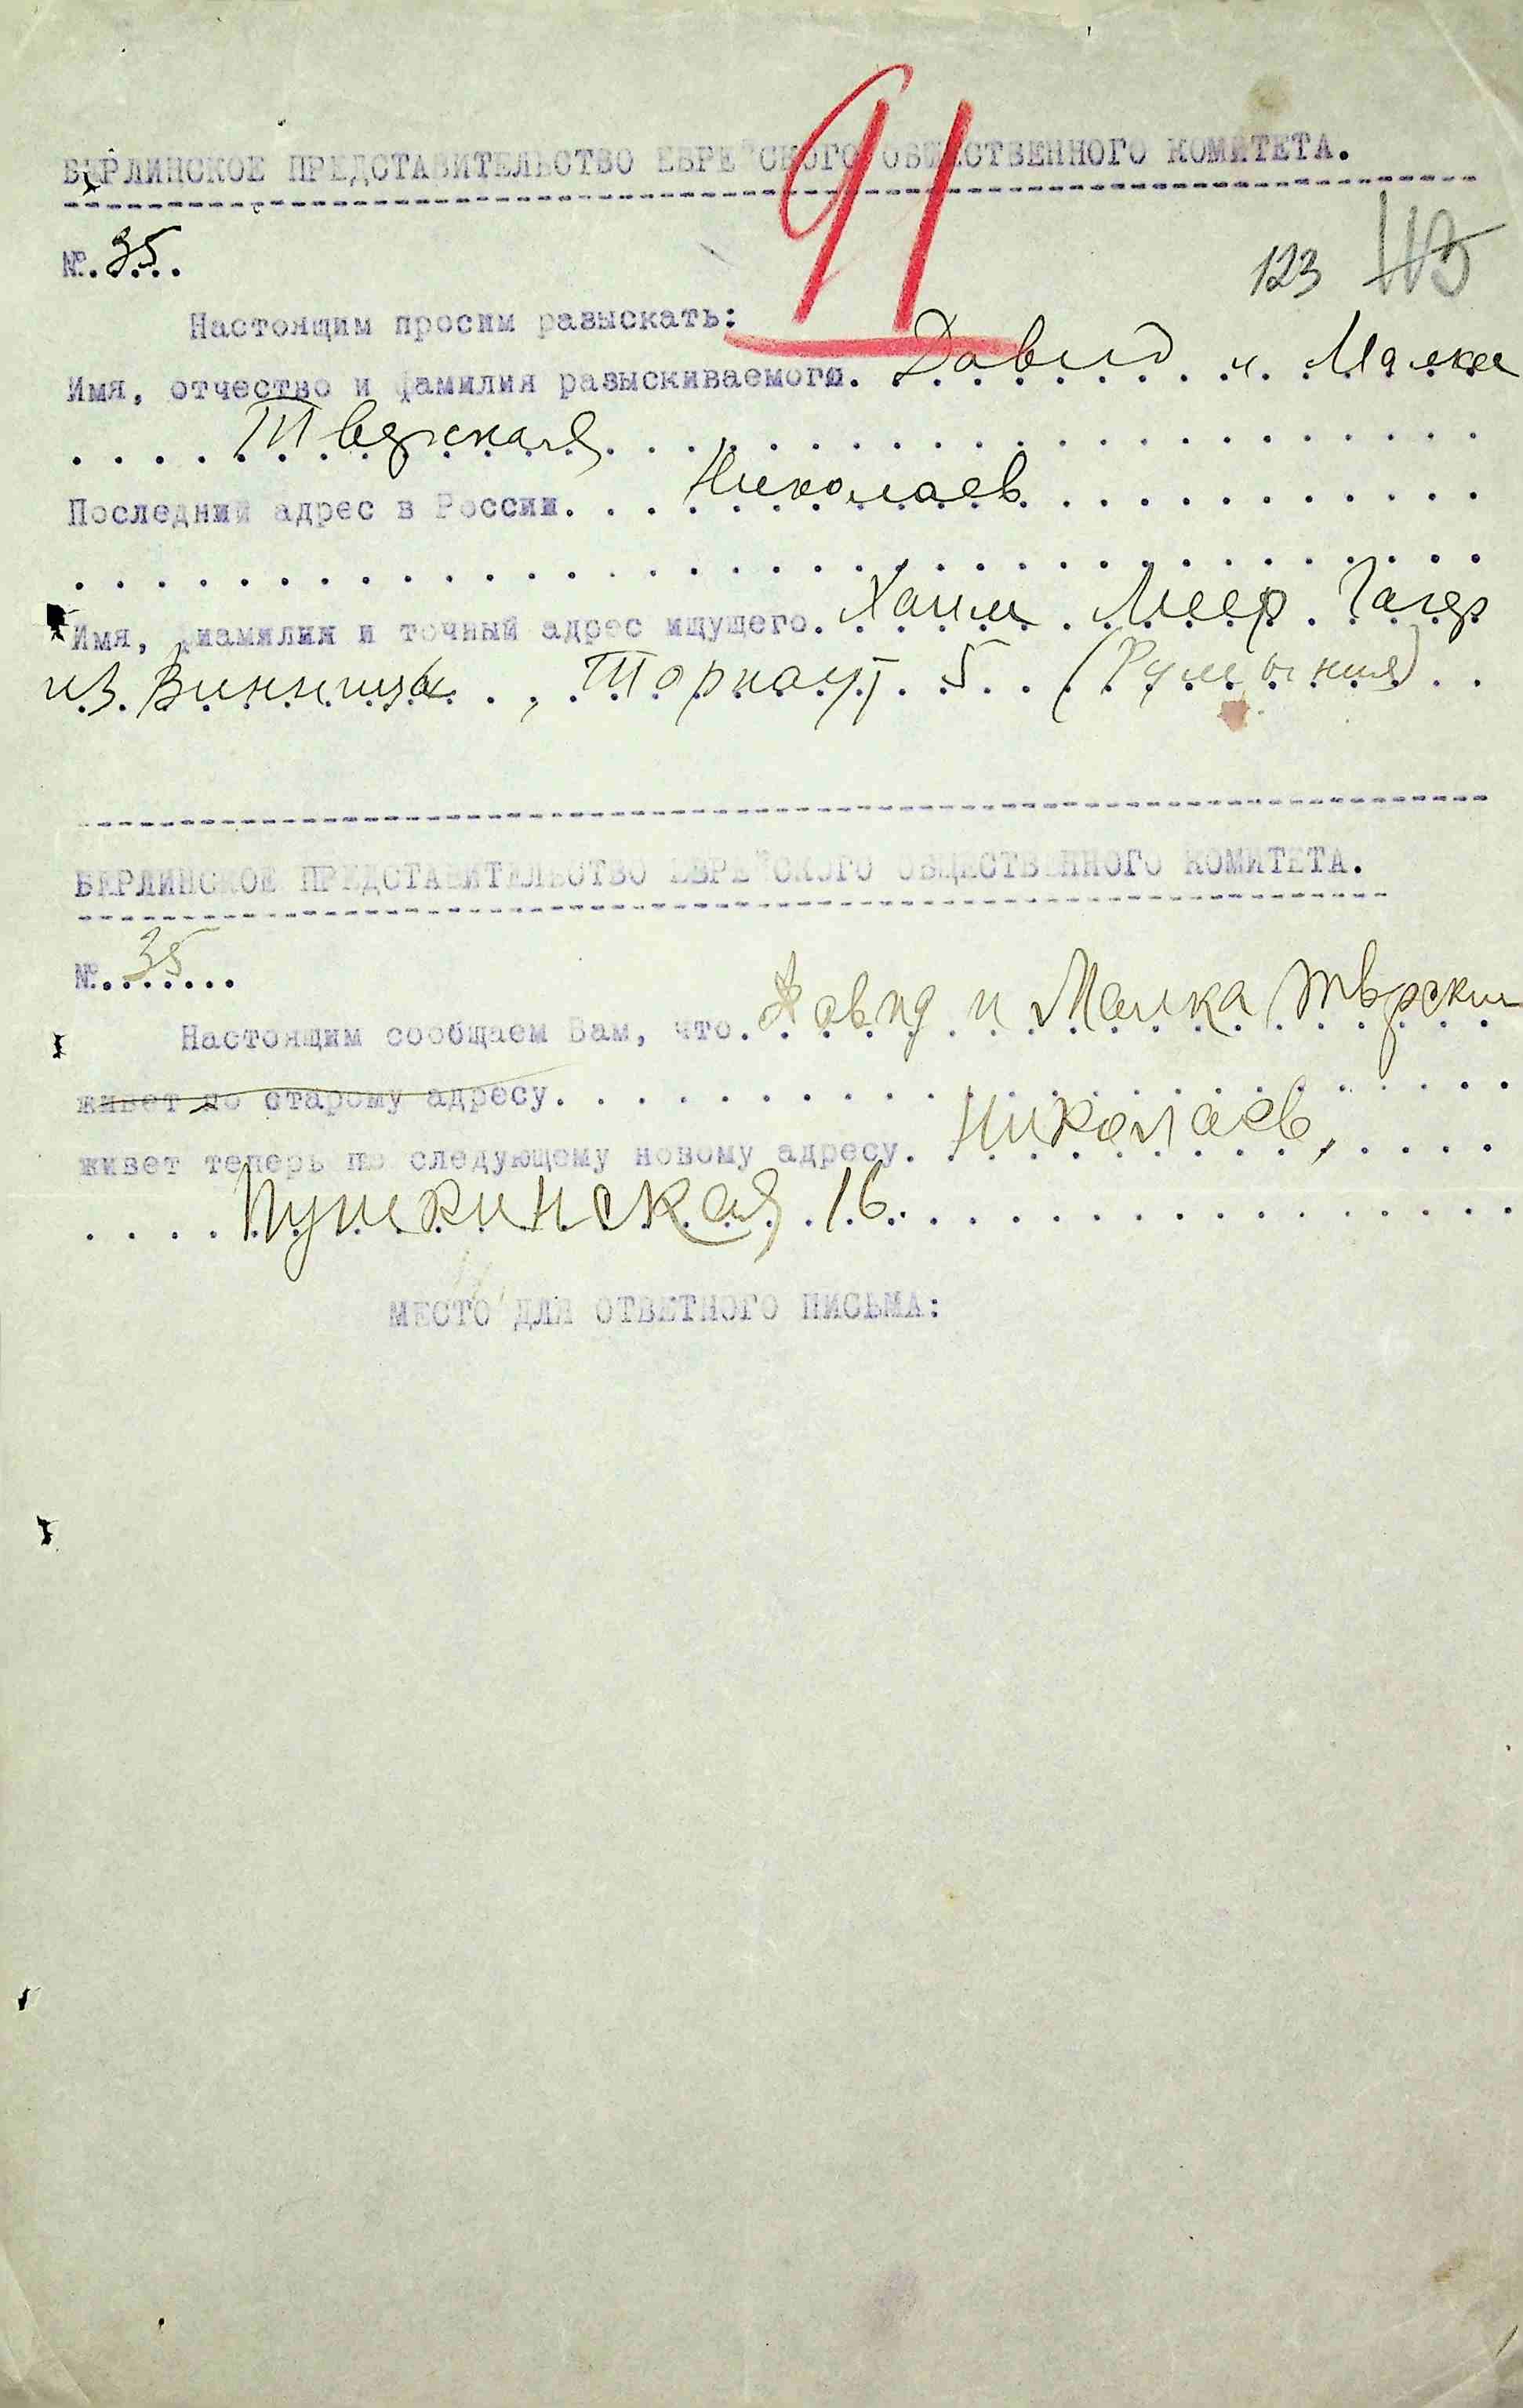 91
БЕРЛИНСКОЕ ПРЕДСТАВИТЕЛЬСТВО ЕВРЕЙСКОГО ОБЩЕСТВЕННОГО КОМИТЕТА.
№. 35.
123 113
Настоящим просим разыскать:
Имя, отчество и фамилия разыскиваемого. Давид и Малка
Тверская
Последний адрес в России. Николаев
Имя, фиамилия и точный адрес ищущего. Хаим Меер Гагер
из Винница, Торнаут 5 (Румыния)
БЕРЛИНСКОЕ ПРЕДСТАВИТЕЛЬСТВО ЕВРЕЙСКОГО ОБЩЕСТВЕННОГО КОМИТЕТА.
№. 35
Настоящим сообщаем Вам, что. Давид и Малка Тврски
живет по старому адресу.
живет теперь по следующему новому адресу. Николаев,
Пушкинская 16.
МЕСТО ДЛЯ ОТВЕТНОГО ПИСЬМА: